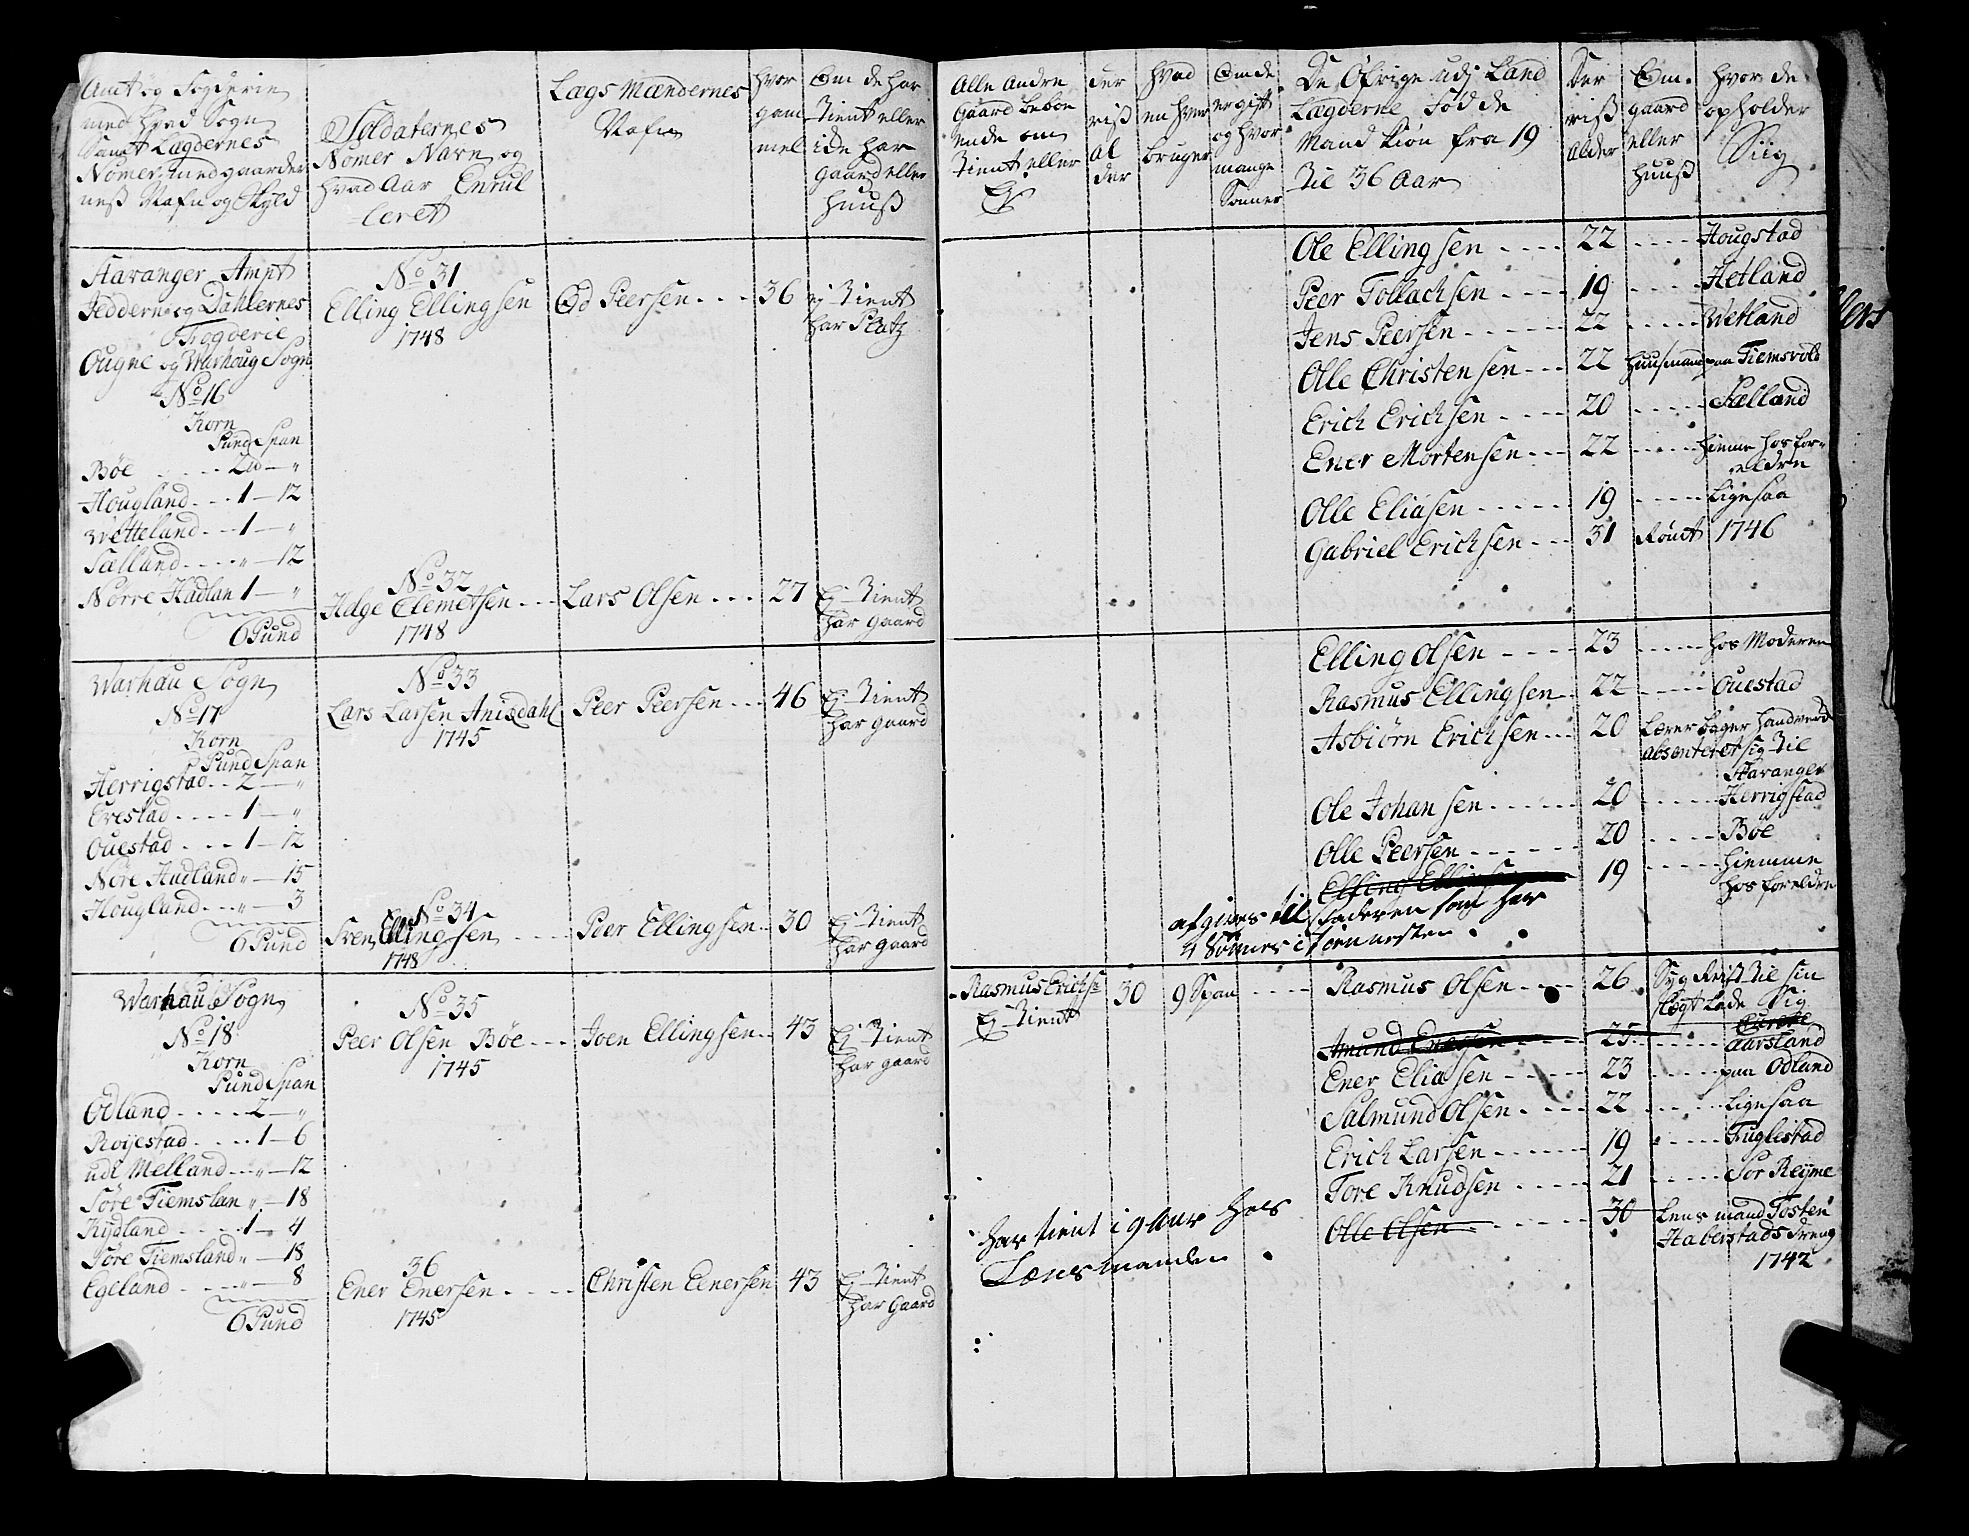 Amt og Fogderie
med hvad Sogn
Samt Lægdernes
Nomer med gaarder
neß Nafn og Skyld
Soldaternes
Nomer Navn og
hvad Aar Enrul
leret
Lægs Mændernes
Nafn
hvor
gam
mel
Om de har
tient eller
ide har
gaard eller
huuß
Alle Andre
gaard beboe
ende om
tient eller
Ej
der
riß
al
der
hvad
en hver
bruger
Om de
er gift
og hvor
mange
Sønner
De Øfrige udj Land
Lægderne Fødde
Mand kiøn fra 19
til 36 Aar
der
riß
alder
Om
gaard
eller
huuß
hvor de
opholder
Siig
Stavanger Ampt
Jeddern og Dahlernes
Fogderie
Ougne og Warhoug Sogn
No 16
Korn
Pund Span
Bøe ..... 2 — "
Hougland ... 1 — 12
Wetteland ... 1 — "
Sælland .... " — 12
Nørre Hadlan 1 — "
6 Pund
No 31
Elling Ellingsen
1748
Od Peersen ... 36 ej tient
har Platz
No 32
Helge Clemetsen ...
1748
Lars Olsen ... 27 Ej tient
har gaard
Ole Ellingsen .... 22 .... Hougstad
Peer Tollachsen .... 19 .... Hetland
Jens Peersen ..... 22 .... Wetland
Olle Christensen ... 22 huusmand paa Tiemsvold
Erich Erichsen .... 20 .... Sælland
Ener Mortensen ... 22 .... hiemme hos for-
eldre
Olle Eliasen ..... 19 .... Ligesaa
Gabriel Erichsen ... 31 Rømt 1746
Warhau Sogn
No 17
Korn
Pund Span
Herrigstad .. 2 — "
Erestad .... 1 — "
Ouestad ... 1 — 12
Nøre Hudland " — 15
Hougland ... " — 3
6 Pund
No 33
Lars Larsen Anisdahl
1745
Peer Peersen ... 46 Ej tient
har gaard
No 34
Sven Ellingsen ....
1748
Peer Ellingsen .. 30 Ej tient
har gaard
Elling Olsen .... 23 .... hos Moderen
Rasmus Ellingsen .. 22 .... Ouestad
Asbiørn Erichsen ... 20 Lærer bager handverck
absenteret sig til
Stavanger
Ole Johansen ..... 20 .... Herrigstad
Olle Peersen ..... 20 .... Bøe
Elling Ellingsen 19 .... hiemme
hos foreldre
afgives til faderen som har
4 Sønner i tiennesten .
Warhau Sogn
No 18
Korn
Pund Span
Odland ..... 2 — "
Roijestad .... 1 — 6
udi Melland ... " — 12
Søre Tiemslan " — 18
Kydland .... 1 — 4
Søre Tiemsland " — 18
Egeland .... " — 8
6 Pund
No 35
Peer Olsen Bøe ...
1745
Joen Ellingsen .. 43 Ej tient
har gaard
36
Ener Enersen ....
1745
Christen Einersen 43 Ej tient
har Gaard
Rasmus Erichs: 30 9 Span ....
Ej tient
Rasmus Olsen .... 26 Syg Reist til sin
slegt lade Sig
Curere
Amund Enersen ... 25 .... Aarsland
Ener Eliasen ..... 23 .... paa Odland
Salmund Olsen .... 22 .... Ligesaa
Erich Larsen ..... 19 .... Fuglestad
Tore Knudsen .... 21 .... Sør Reyme
Olle Olsen ..... 30 Lens mand Tosten
Haberstads dreng
1742
har tient i 9 Aar hos
Lensmanden .